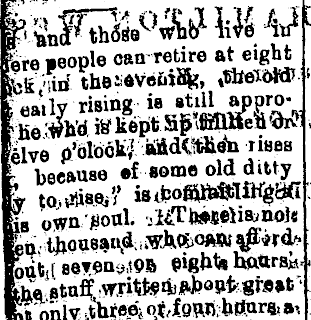 and those who live in
ere people can retire at eight
ck, in the evening, the old
early rising is still appro-
he who is kept up till ten or
elve o'clock, and then rises
, because of some old ditty
y to rise," is
is own soul. There is not
en thousand who can afford
out seven or eight hours
the stuff written about great
nt only three or four hours a